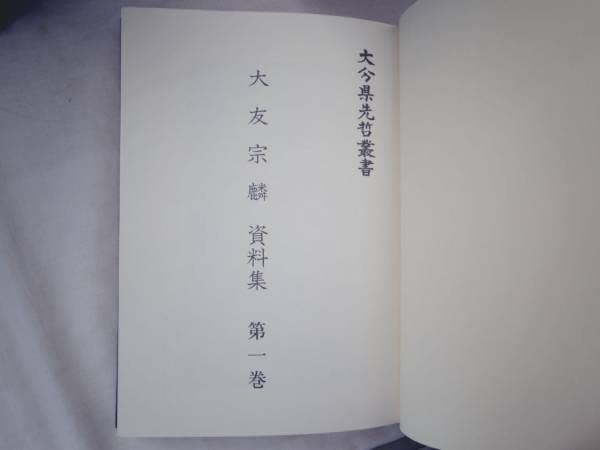 大分県先哲叢書
大友宗麟 資料集 第一巻